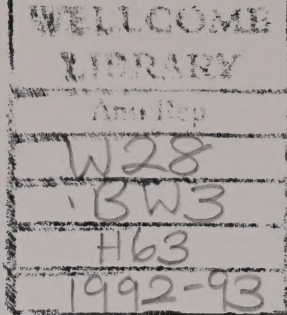 WELLCOME
LIBRARY
Ann Rep
W28
·BW3
H63
1992-93